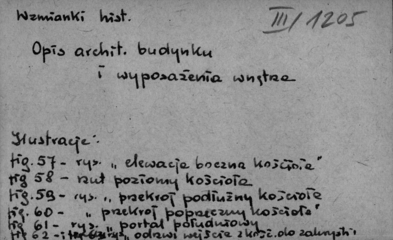 Wzmianki hist.
III/1205
Opis archit. budynku
i wyposażenia wnętrza
Ilustracje:
fig. 57 - rys. „elewacja boczna kościoła"
fig 58 - rzut poziomy kościoła
fig. 59 - rys. „przekrój podłużny kościoła
fig. 60 - „ przekrój poprzeczny kościoła"
fig 61 - rys. „portal południowy
fig 62 - drzwi wejście z kość. do zakrystii